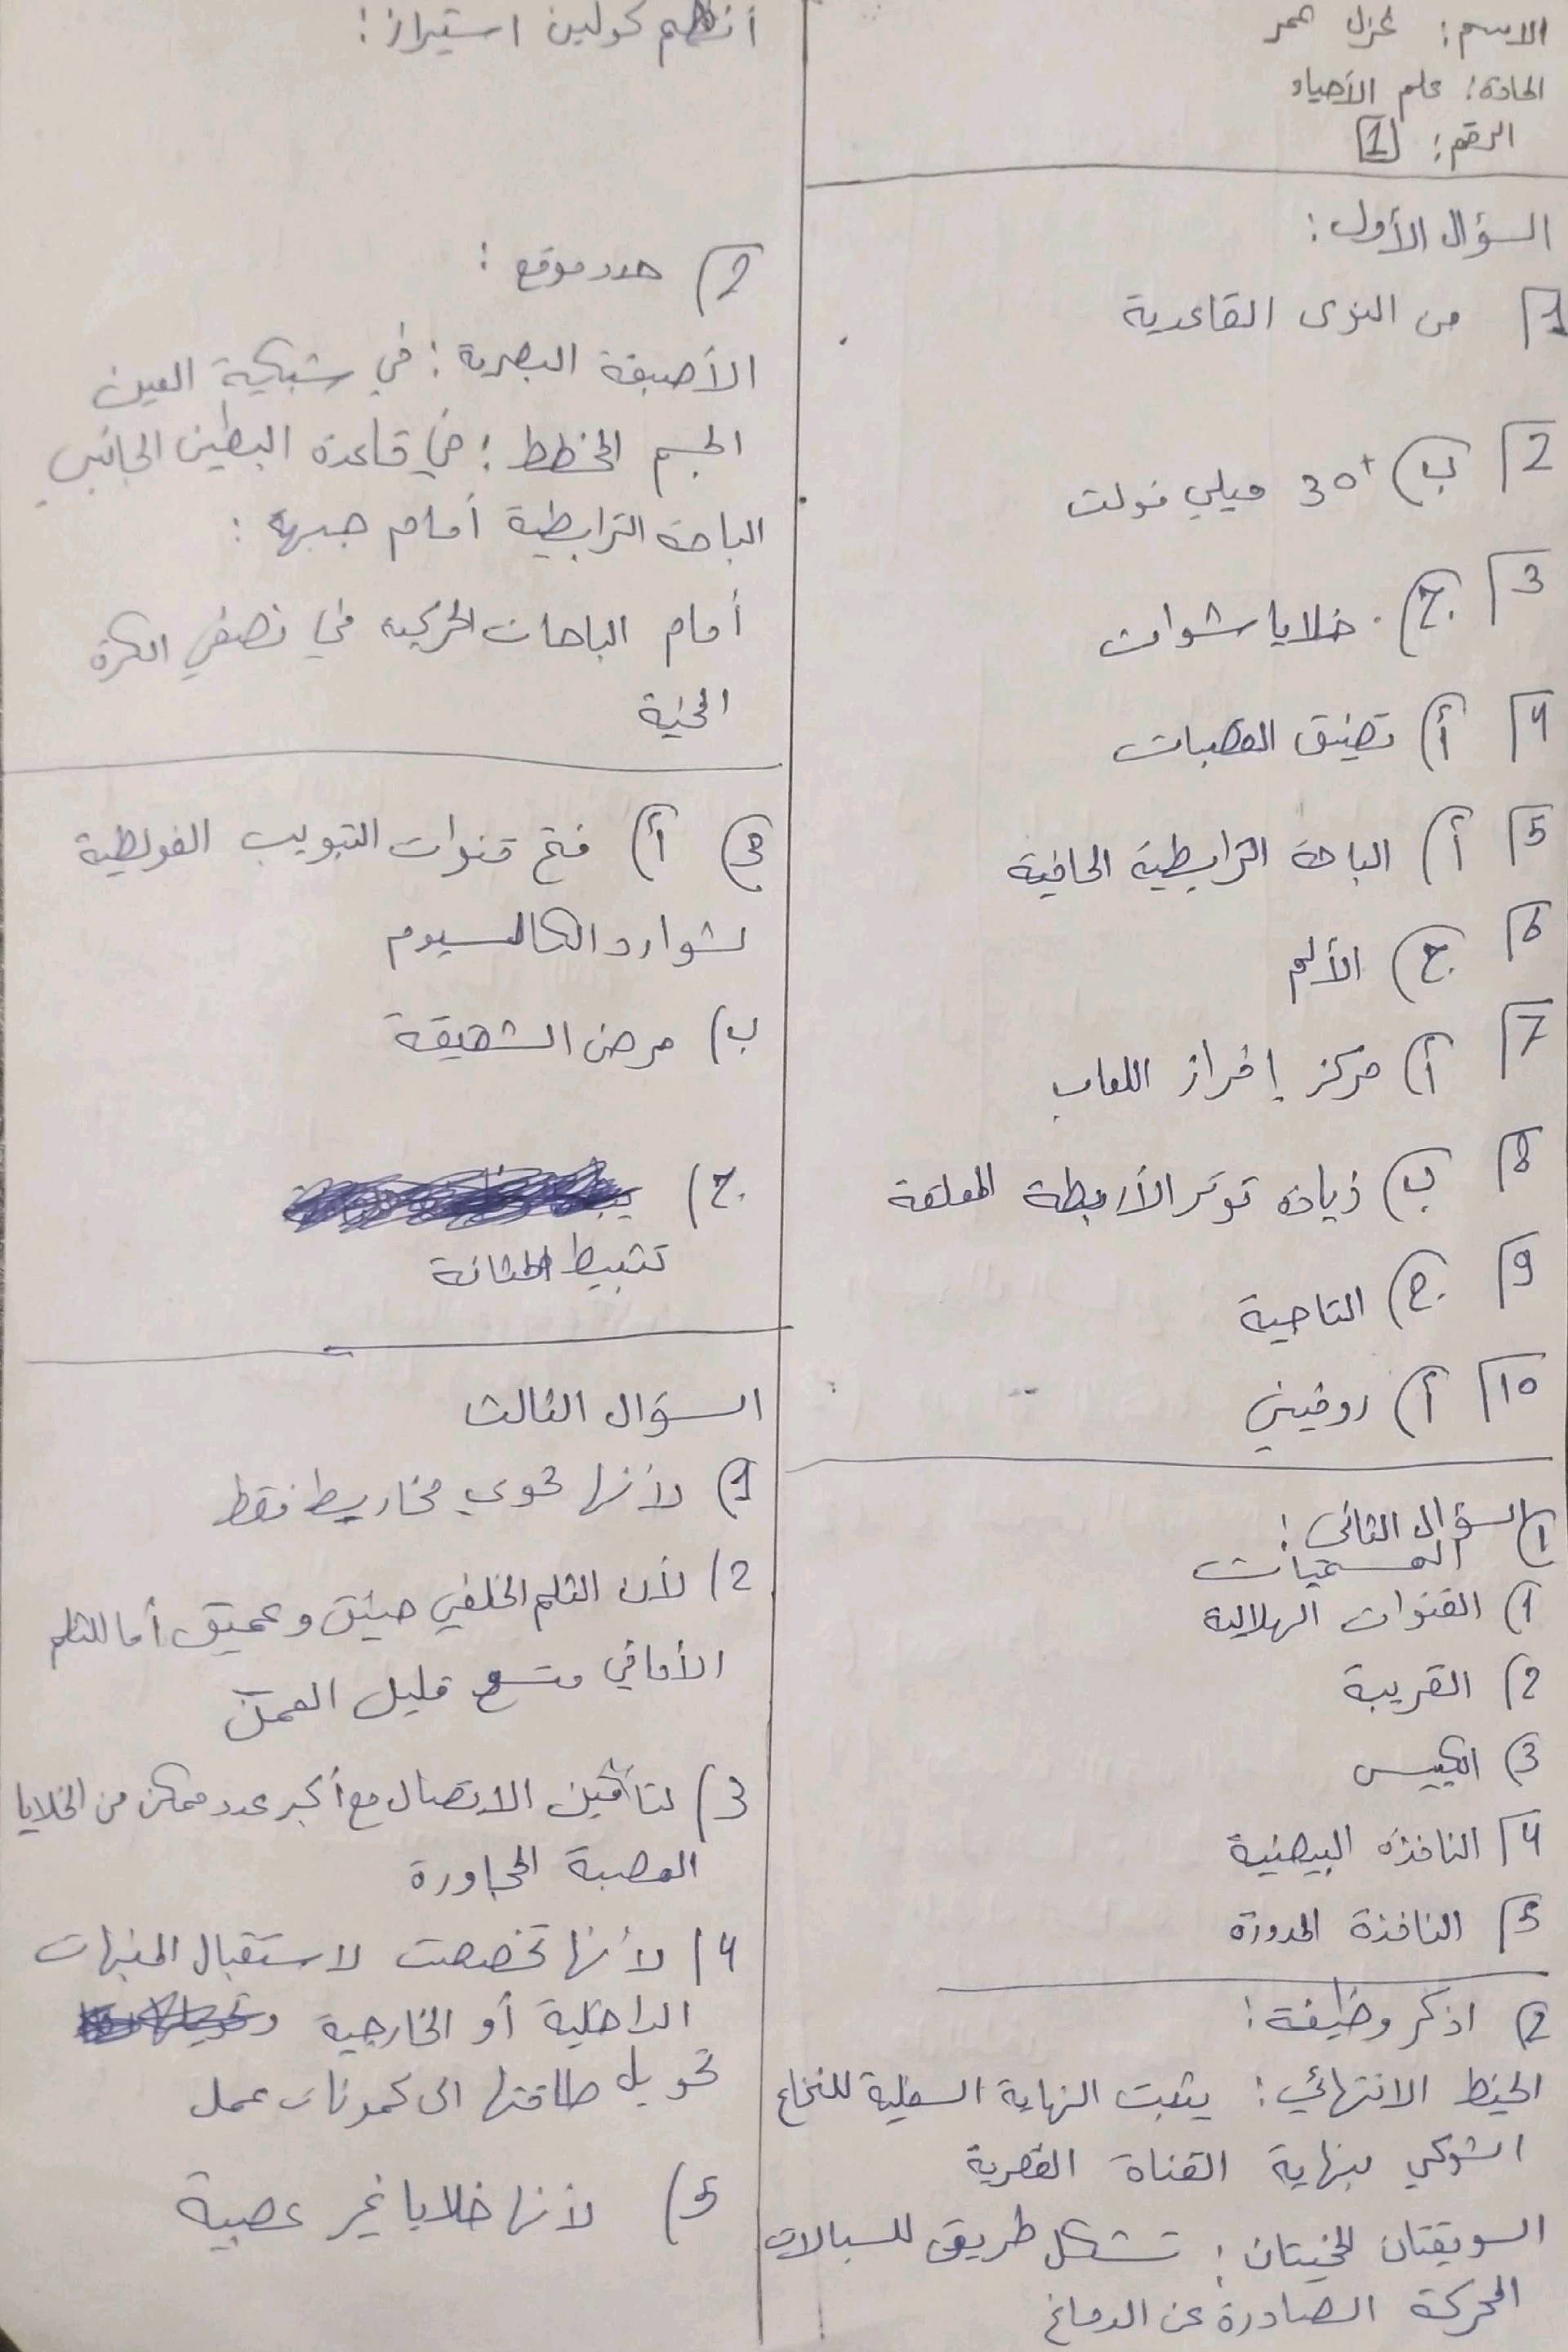 الاسم: غزل عمر
المادة: علم الأحياء
الرقم: 1
السؤال الأول:
1 من النوى القاعدية
2 ب) +30 ميلي فولت
3 ج. خلايا شوان
4 أ) تضيق القصبات
5 أ) الباحة الترابطية الحافية
6 ج) الألم
7 أ) مركز إفراز اللعاب
8 ب) زيادة توتر الأربطة المعلقة
9 ج) التاجية
10 أ) روفيني
السؤال الثاني:
1) المسميات
1) القنوات الهلالية
2) القريبة
3) الكييس
4) النافذة البيضية
5) النافذة المدورة
2) اذكر وظيفة:
الخيط الانتهائي: يثبت النهاية السفلية للنخاع
الشوكي بنهاية القناة الفقرية
السويقتان المخيتان: تشكل طريق للسيالات
المحركة الصادرة عن الدماغ
أنظيم كولين استيراز:
2) حدد موقع:
الأصبغة البصرية: في شبكية العين
الجسم المخطط: في قاعدة البطين الجانبي
الباحة الترابطية أمام جبهية:
أمام الباحات الحركية في نصفي الكرة
المخية
3) أ) فتح قنوات التبويب الفولطية
لشوارد الكالسيوم
ب) مرض الشقيقة
ج)
تثبيط المثانة
السؤال الثالث
1) لأنها تحوي مخاريط فقط
2) لأن الثلم الخلفي ضيق وعميق أما الثلم
الأمامي متسع قليل العمق
3) لتأمين الاتصال مع أكبر عدد ممكن من الخلايا
العصبة المجاورة
4) لأنها تخصصت لاستقبال المنبهات
الداخلية أو الخارجية و
تحويل طاقتها الى كمونات عمل
5) لأنها خلايا غير عصبية